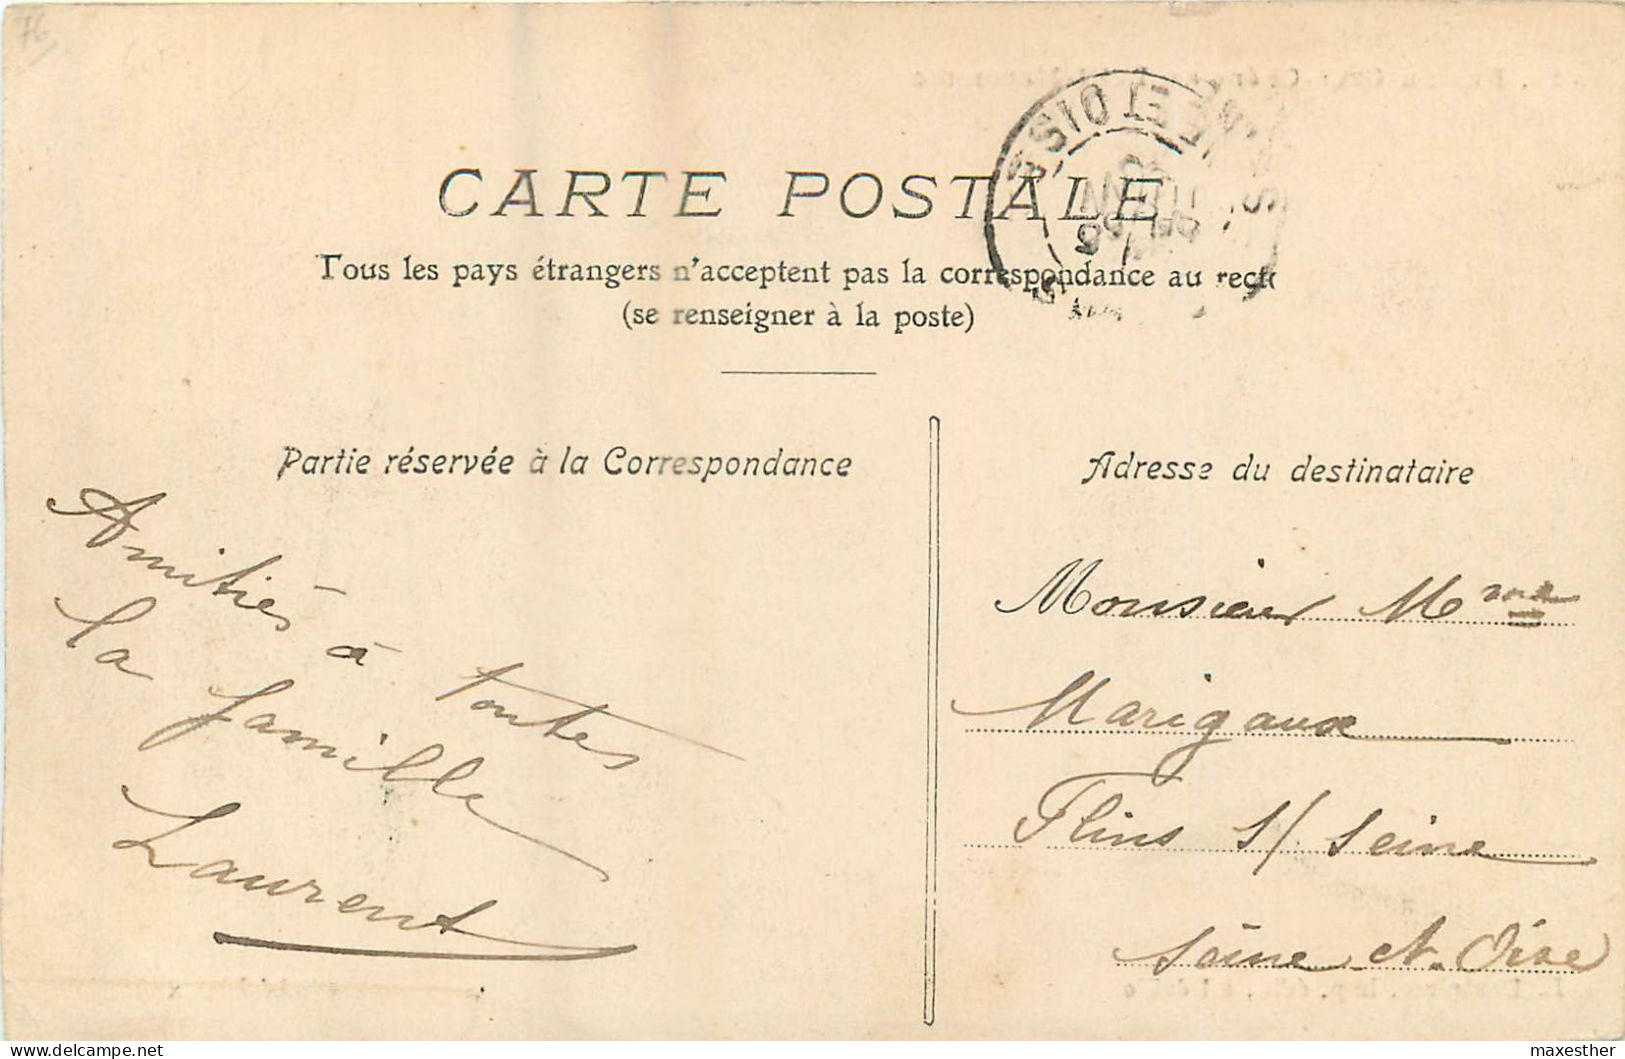 76
CARTE POSTALE
Tous les pays étrangers n'acceptent pas la correspondance au recto
(se renseigner à la poste)
Partie réservée à la Correspondance
Amitiés à toutes
la famille
Laurent
Adresse du destinataire
Monsieur Mme
Marigaux
Flins s/ Seine
Seine et Oise
SEINE ET OISE
Delcampe.net
maxesther